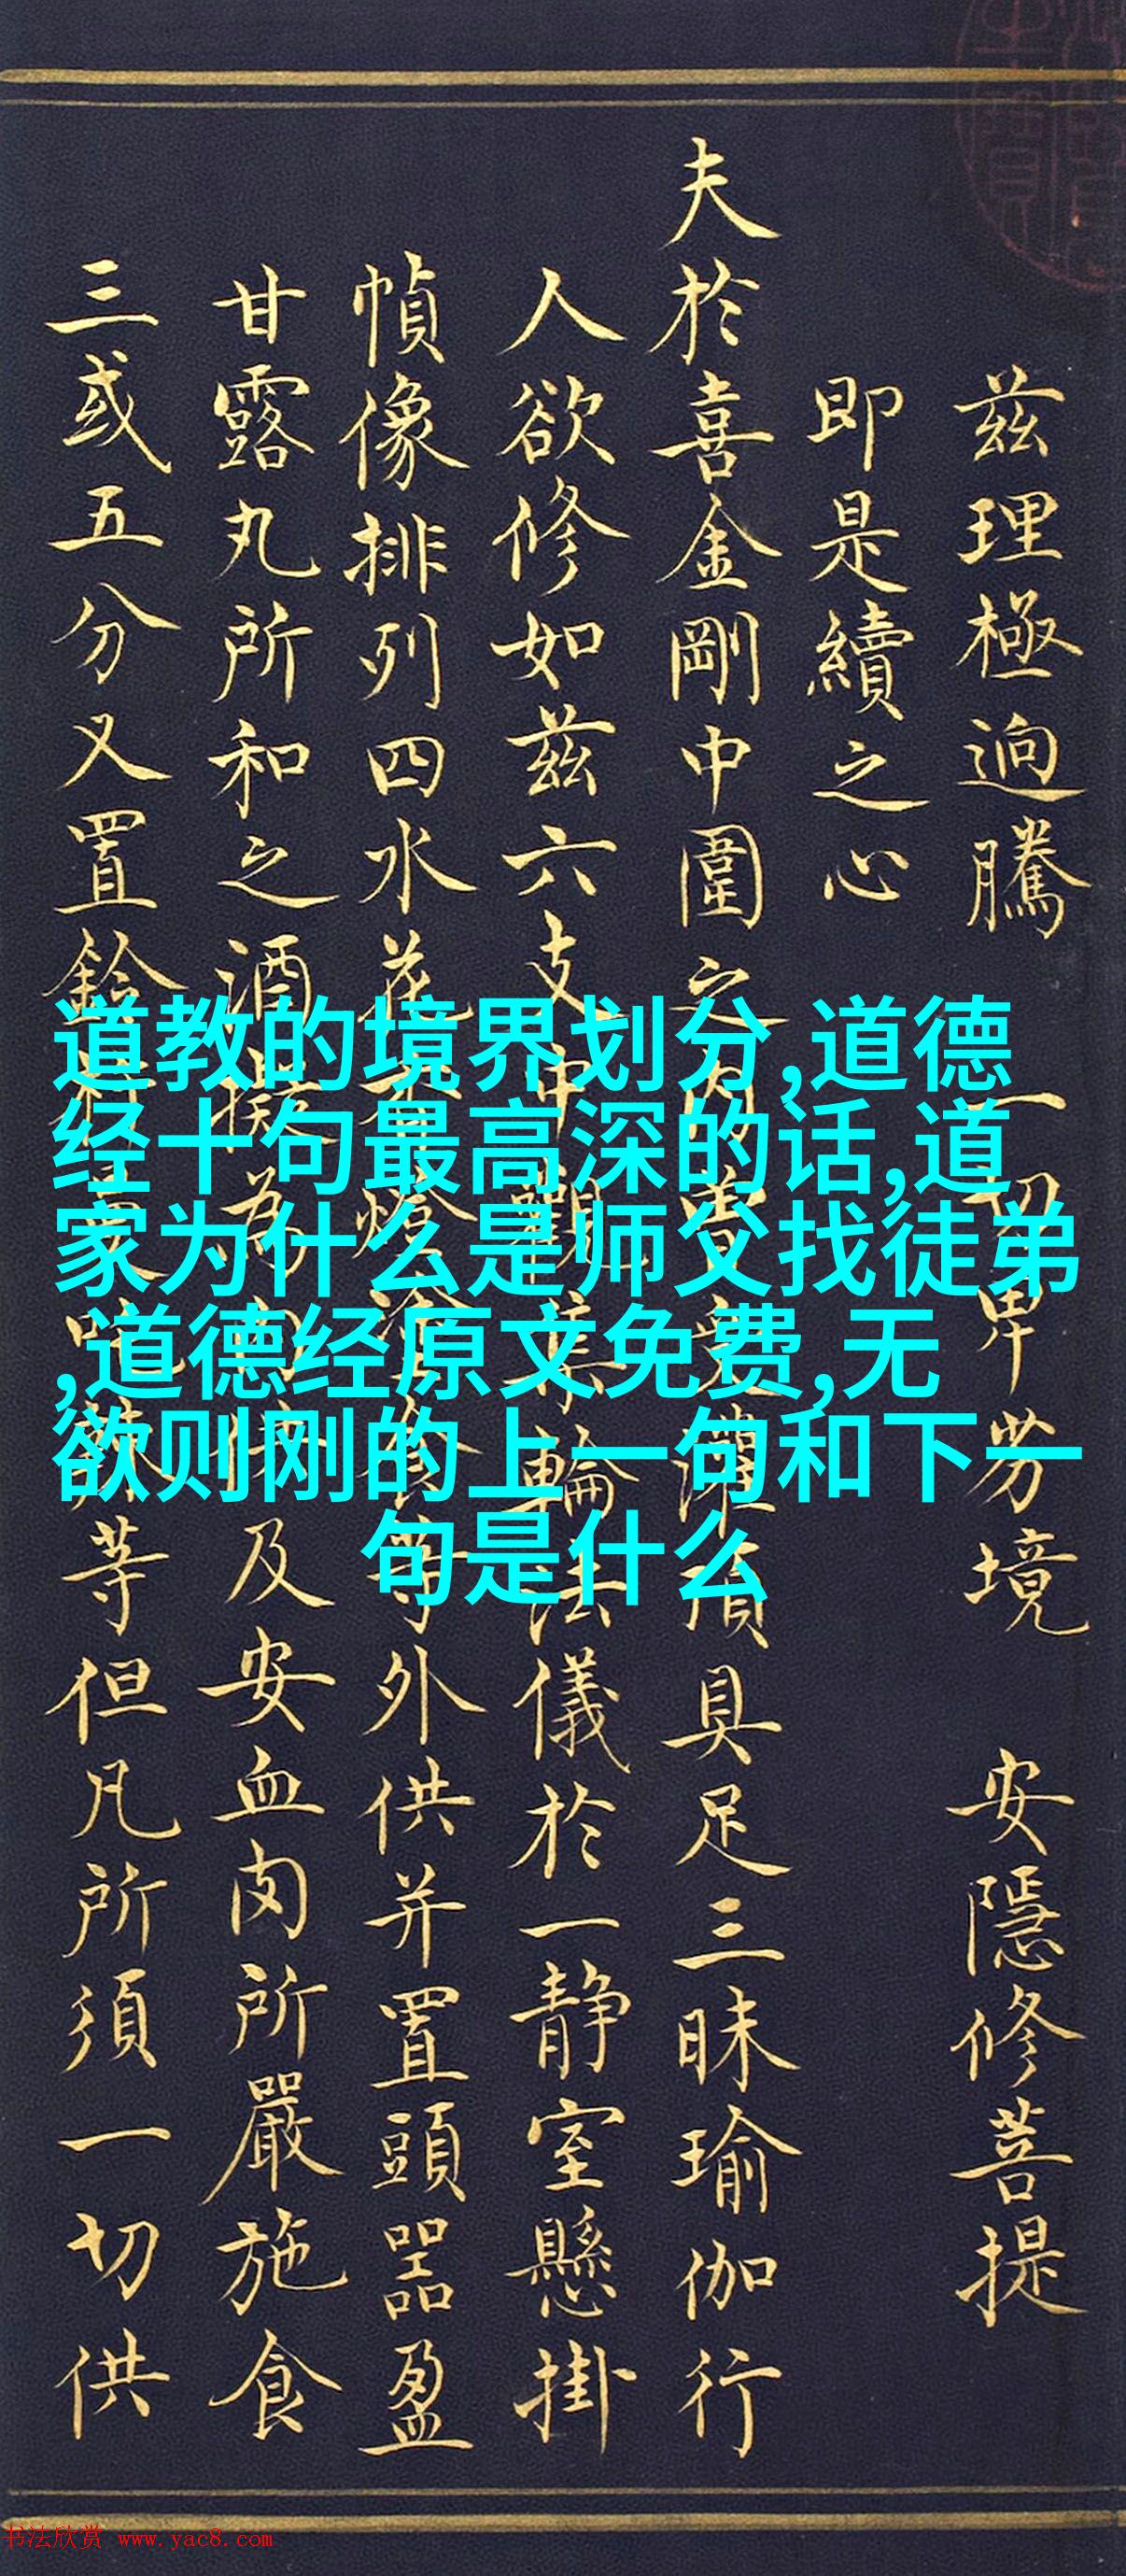 茲理極逈騰 一切卑劣境 安隱修菩提
即是續之心
夫於喜金剛中圍之内受灌頂具足三昧瑜伽行
人欲修如茲六支中觀集輪法儀於一静室懸掛
幀像排列四水花燈塗食等外供并置頭器盈
甘露丸所和之酒为供及安血肉所嚴施食
三或五分又置鈴杵等但凡所須一切供
道教的境界划分,道德
经十句最高深的话,道
家为什么是师父找徒弟
,道德经原文免费,无
欲则刚的上一句和下一
句是什么
书法欣赏 www.yac8.com